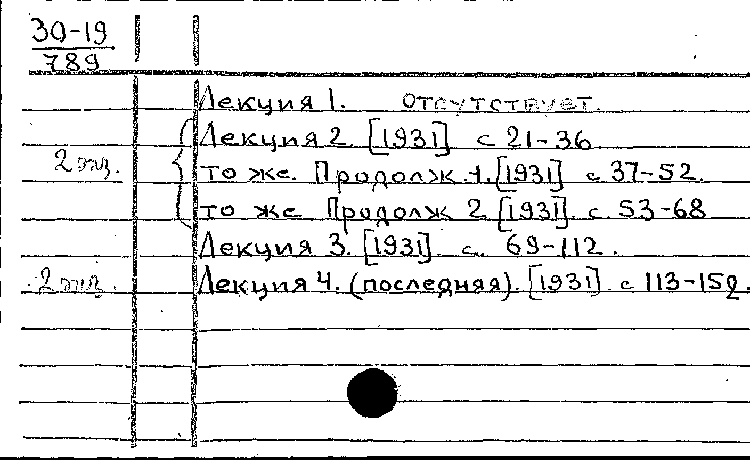 30-19
789
Лекция 1. отсутствует.
Лекция 2. [1931] с 21-36
2 экз. то же. Продолж. 1. [1931] с 37-52.
то же Продолж 2 [1931]. с. 53-68
Лекция 3. [1931]. с. 69-112.
2 экз. Лекция 4. (последняя). [1931]. с 113-152.